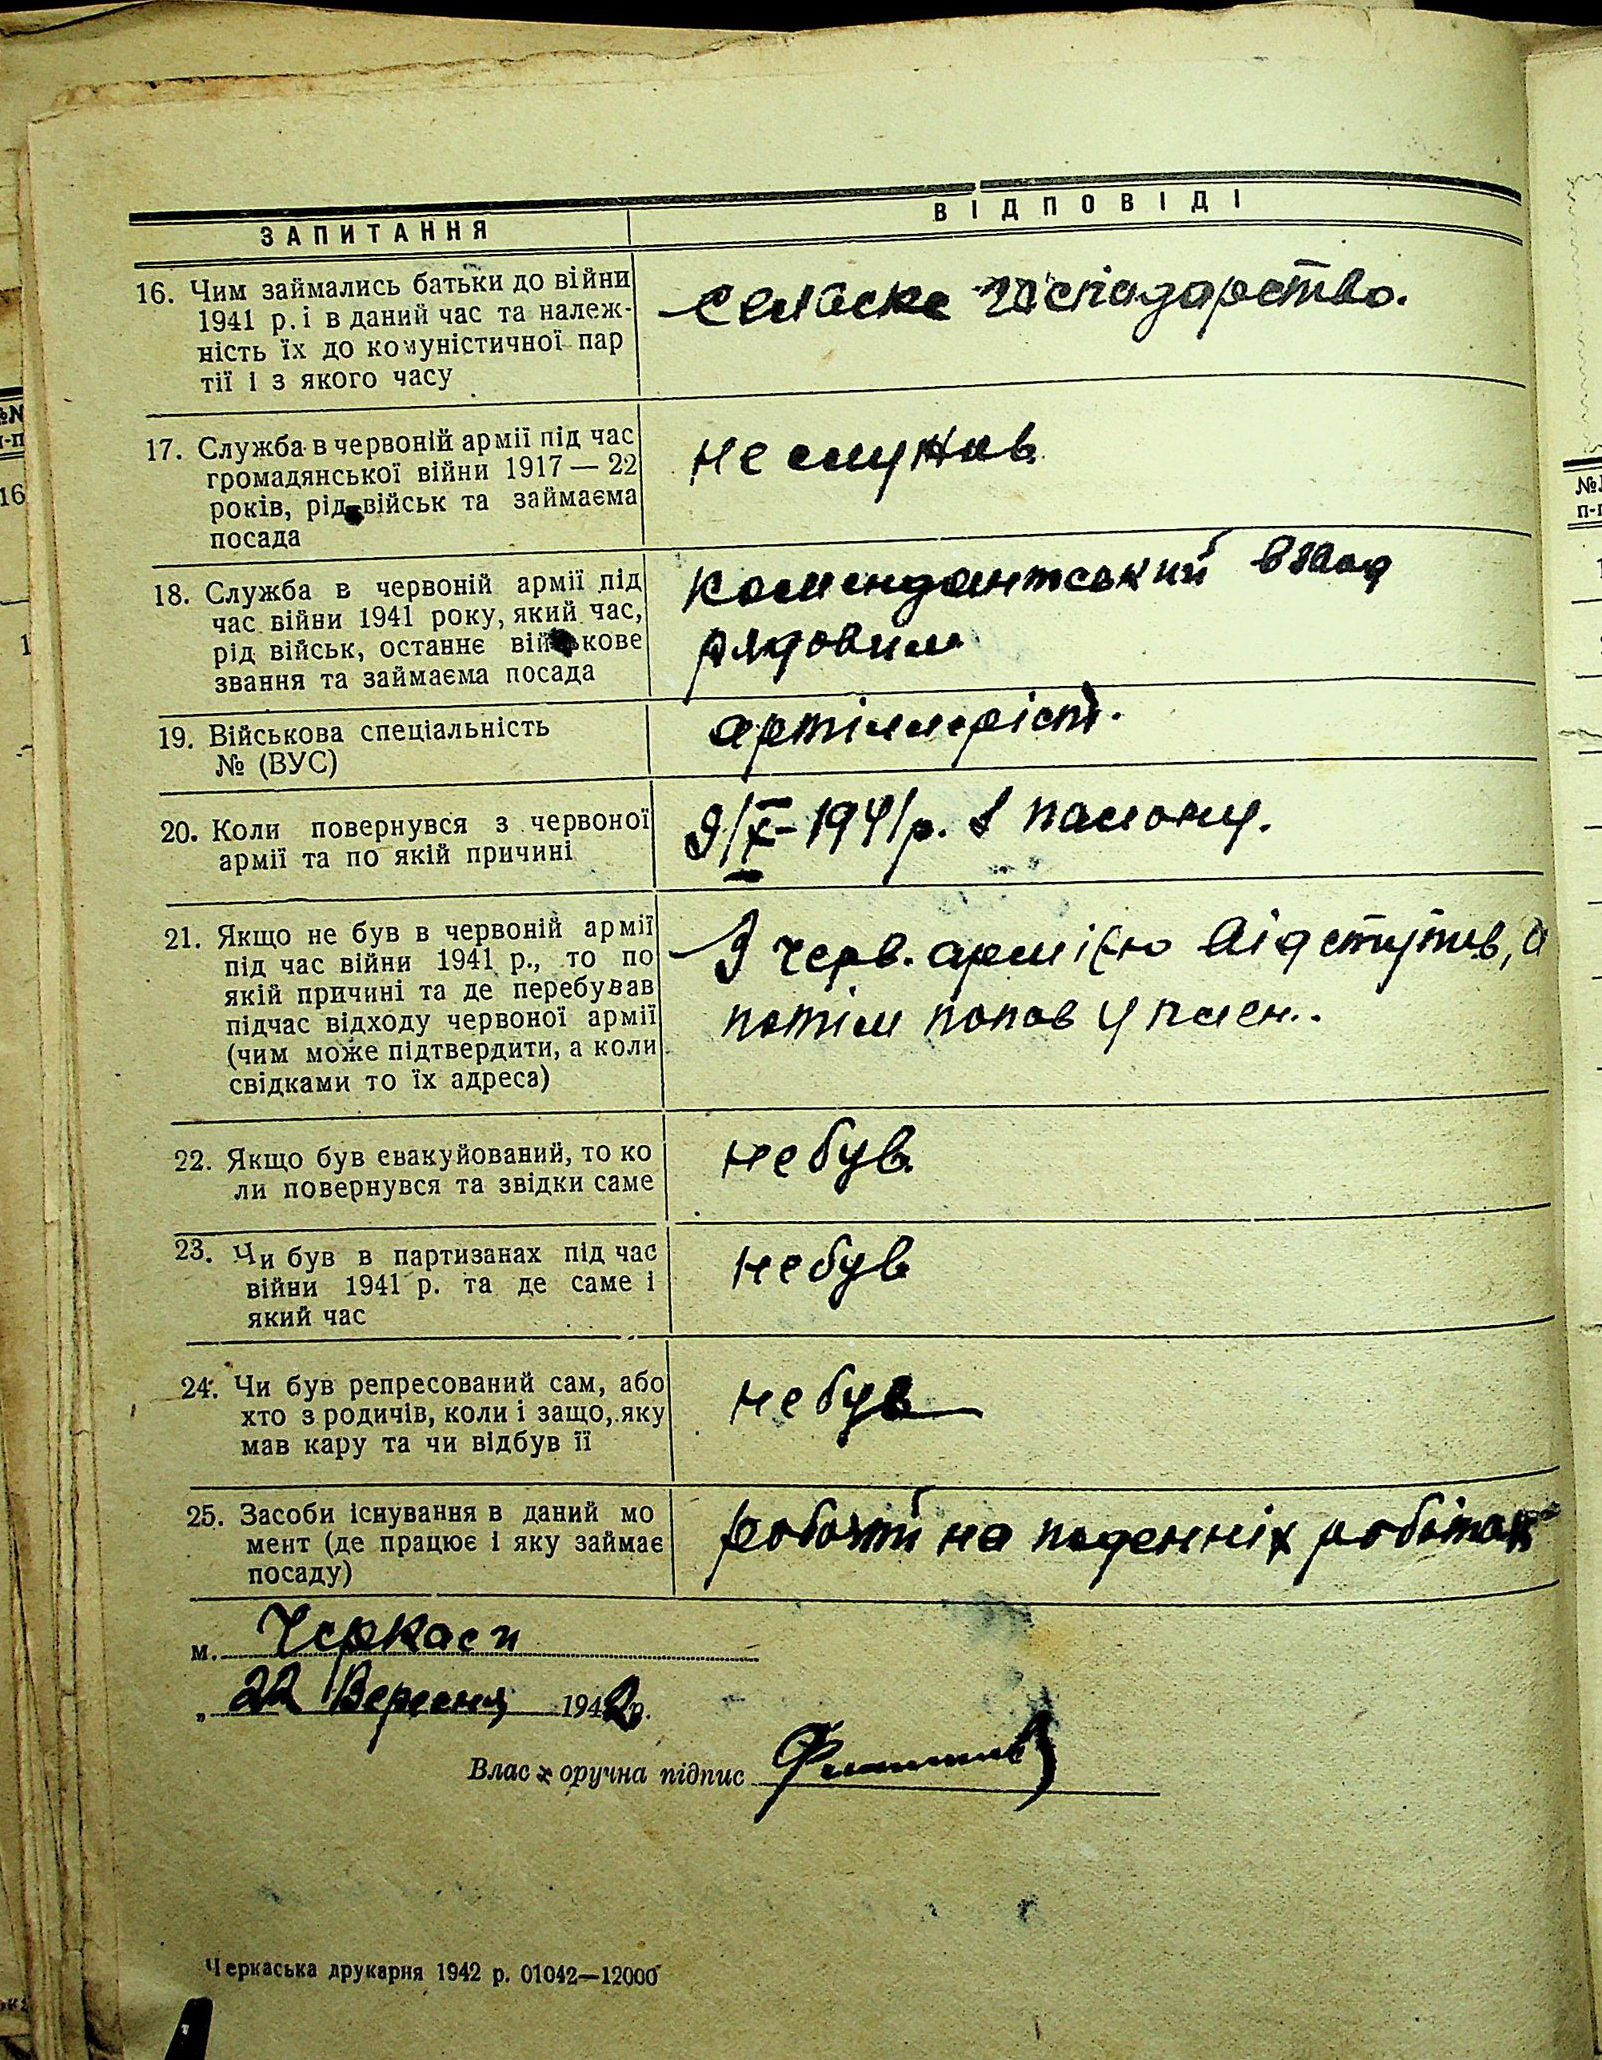 ЗАПИТАННЯ
ВІДПОВІДІ
16. Чим займались батьки до війни
1941 р. і в даний час та належ-
ність їх до комуністичної пар
тії і з якого часу
сельське господарство.
17. Служба в червоній армії під час
громадянської війни 1917 — 22
років, рід військ та займаєма
посада
не служив
18. Служба в червоній армії під
час війни 1941 року, який час,
рід військ, останнє військове
звання та займаєма посада
комендантський взвод
рядовим
19. Військова спеціальність
№ (ВУС)
артілєріст.
20. Коли повернувся з червоної
армії та по якій причині
9/X-1941 р. з полону.
21. Якщо не був в червоній армії
під час війни 1941 р., то по
якій причині та де перебував
підчас відходу червоної армії
(чим може підтвердити, а коли
свідками то їх адреса)
З черв. армією відступив, а
потім попав у плен.
22. Якщо був евакуйований, то ко
ли повернувся та звідки саме
не був
23. Чи був в партизанах під час
війни 1941 р. та де саме і
який час
не був
24. Чи був репресований сам, або
хто з родичів, коли і защо, яку
мав кару та чи відбув її
не був
25. Засоби існування в даний мо
мент (де працює і яку займає
посаду)
на поденніх роботах
м. Черкаси
„ 22 Вересня 1942 р.
Власноручна підпис
Черкаська друкарня 1942 р. 01042—12000